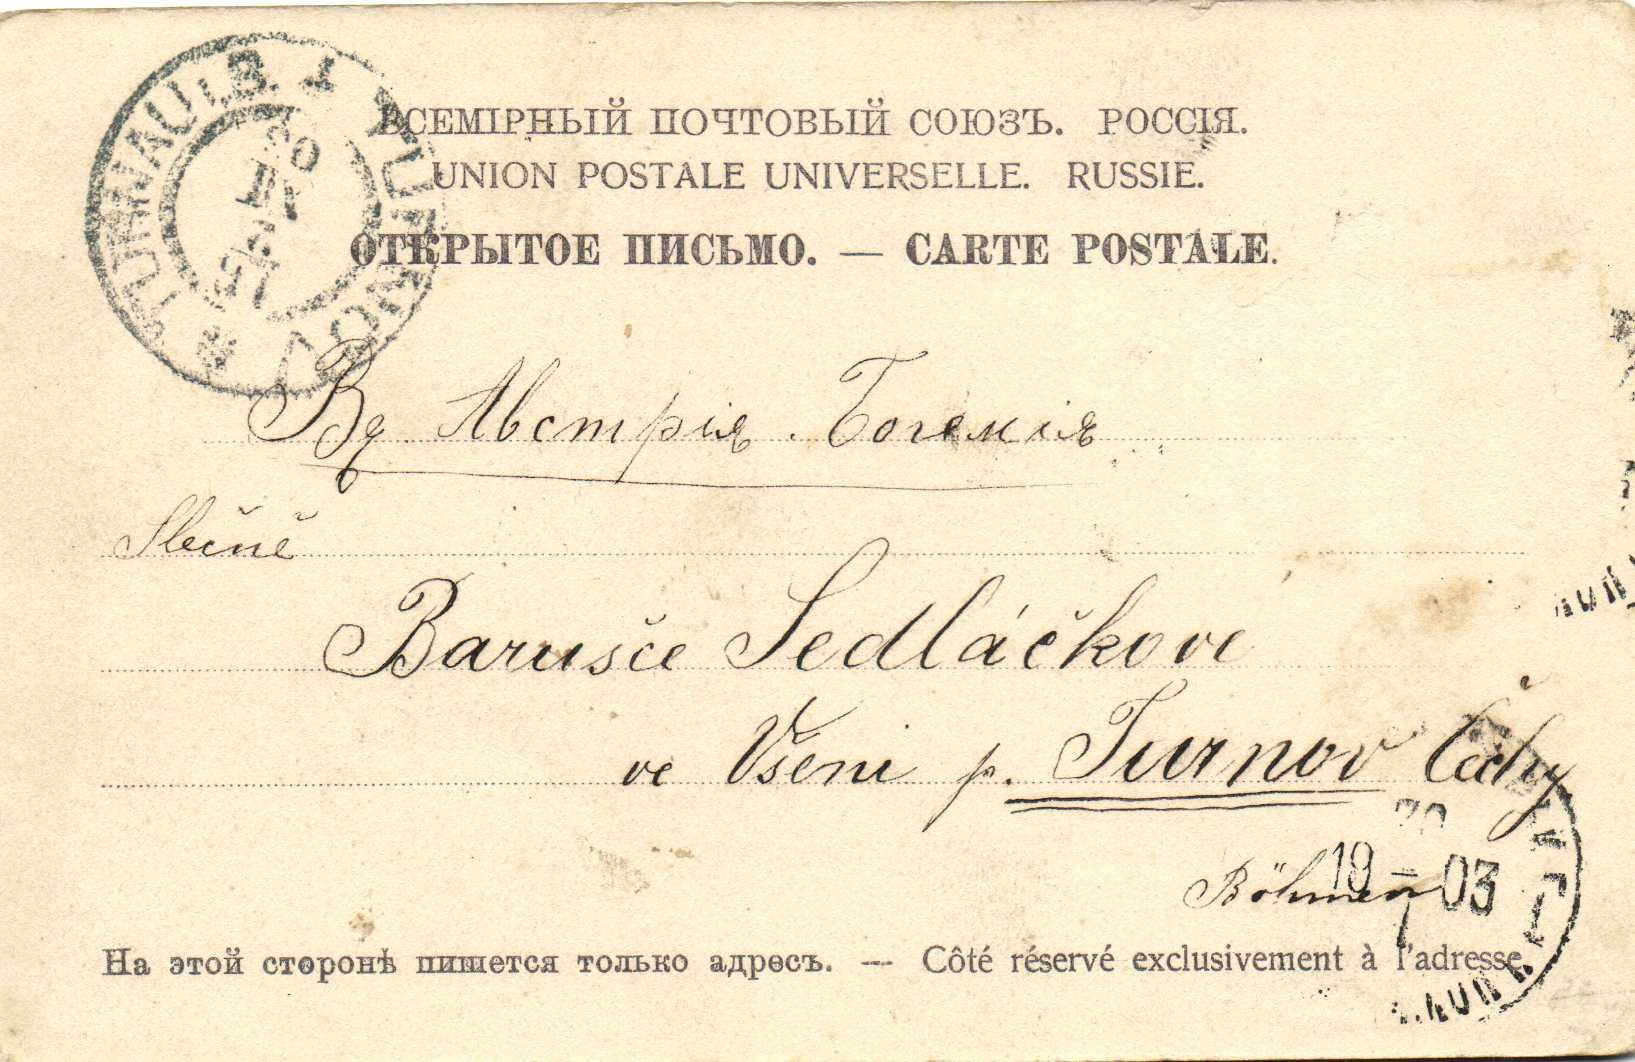 ВСЕМІРНЫЙ ПОЧТОВЫЙ СОЮЗЪ. РОССІЯ.
UNION POSTALE UNIVERSELLE. RUSSIE.
ОТКРЫТОЕ ПИСЬМО. — CARTE POSTALE.
TURNAU TURNOV
Австрія. Богемія
Slečně
Barušce Sedláčkove
ve Všeni p. Turnov Čechy
Böhmen
19 03
На этой сторонѣ пишется только адресъ. — Côté réservé exclusivement à l'adresse.